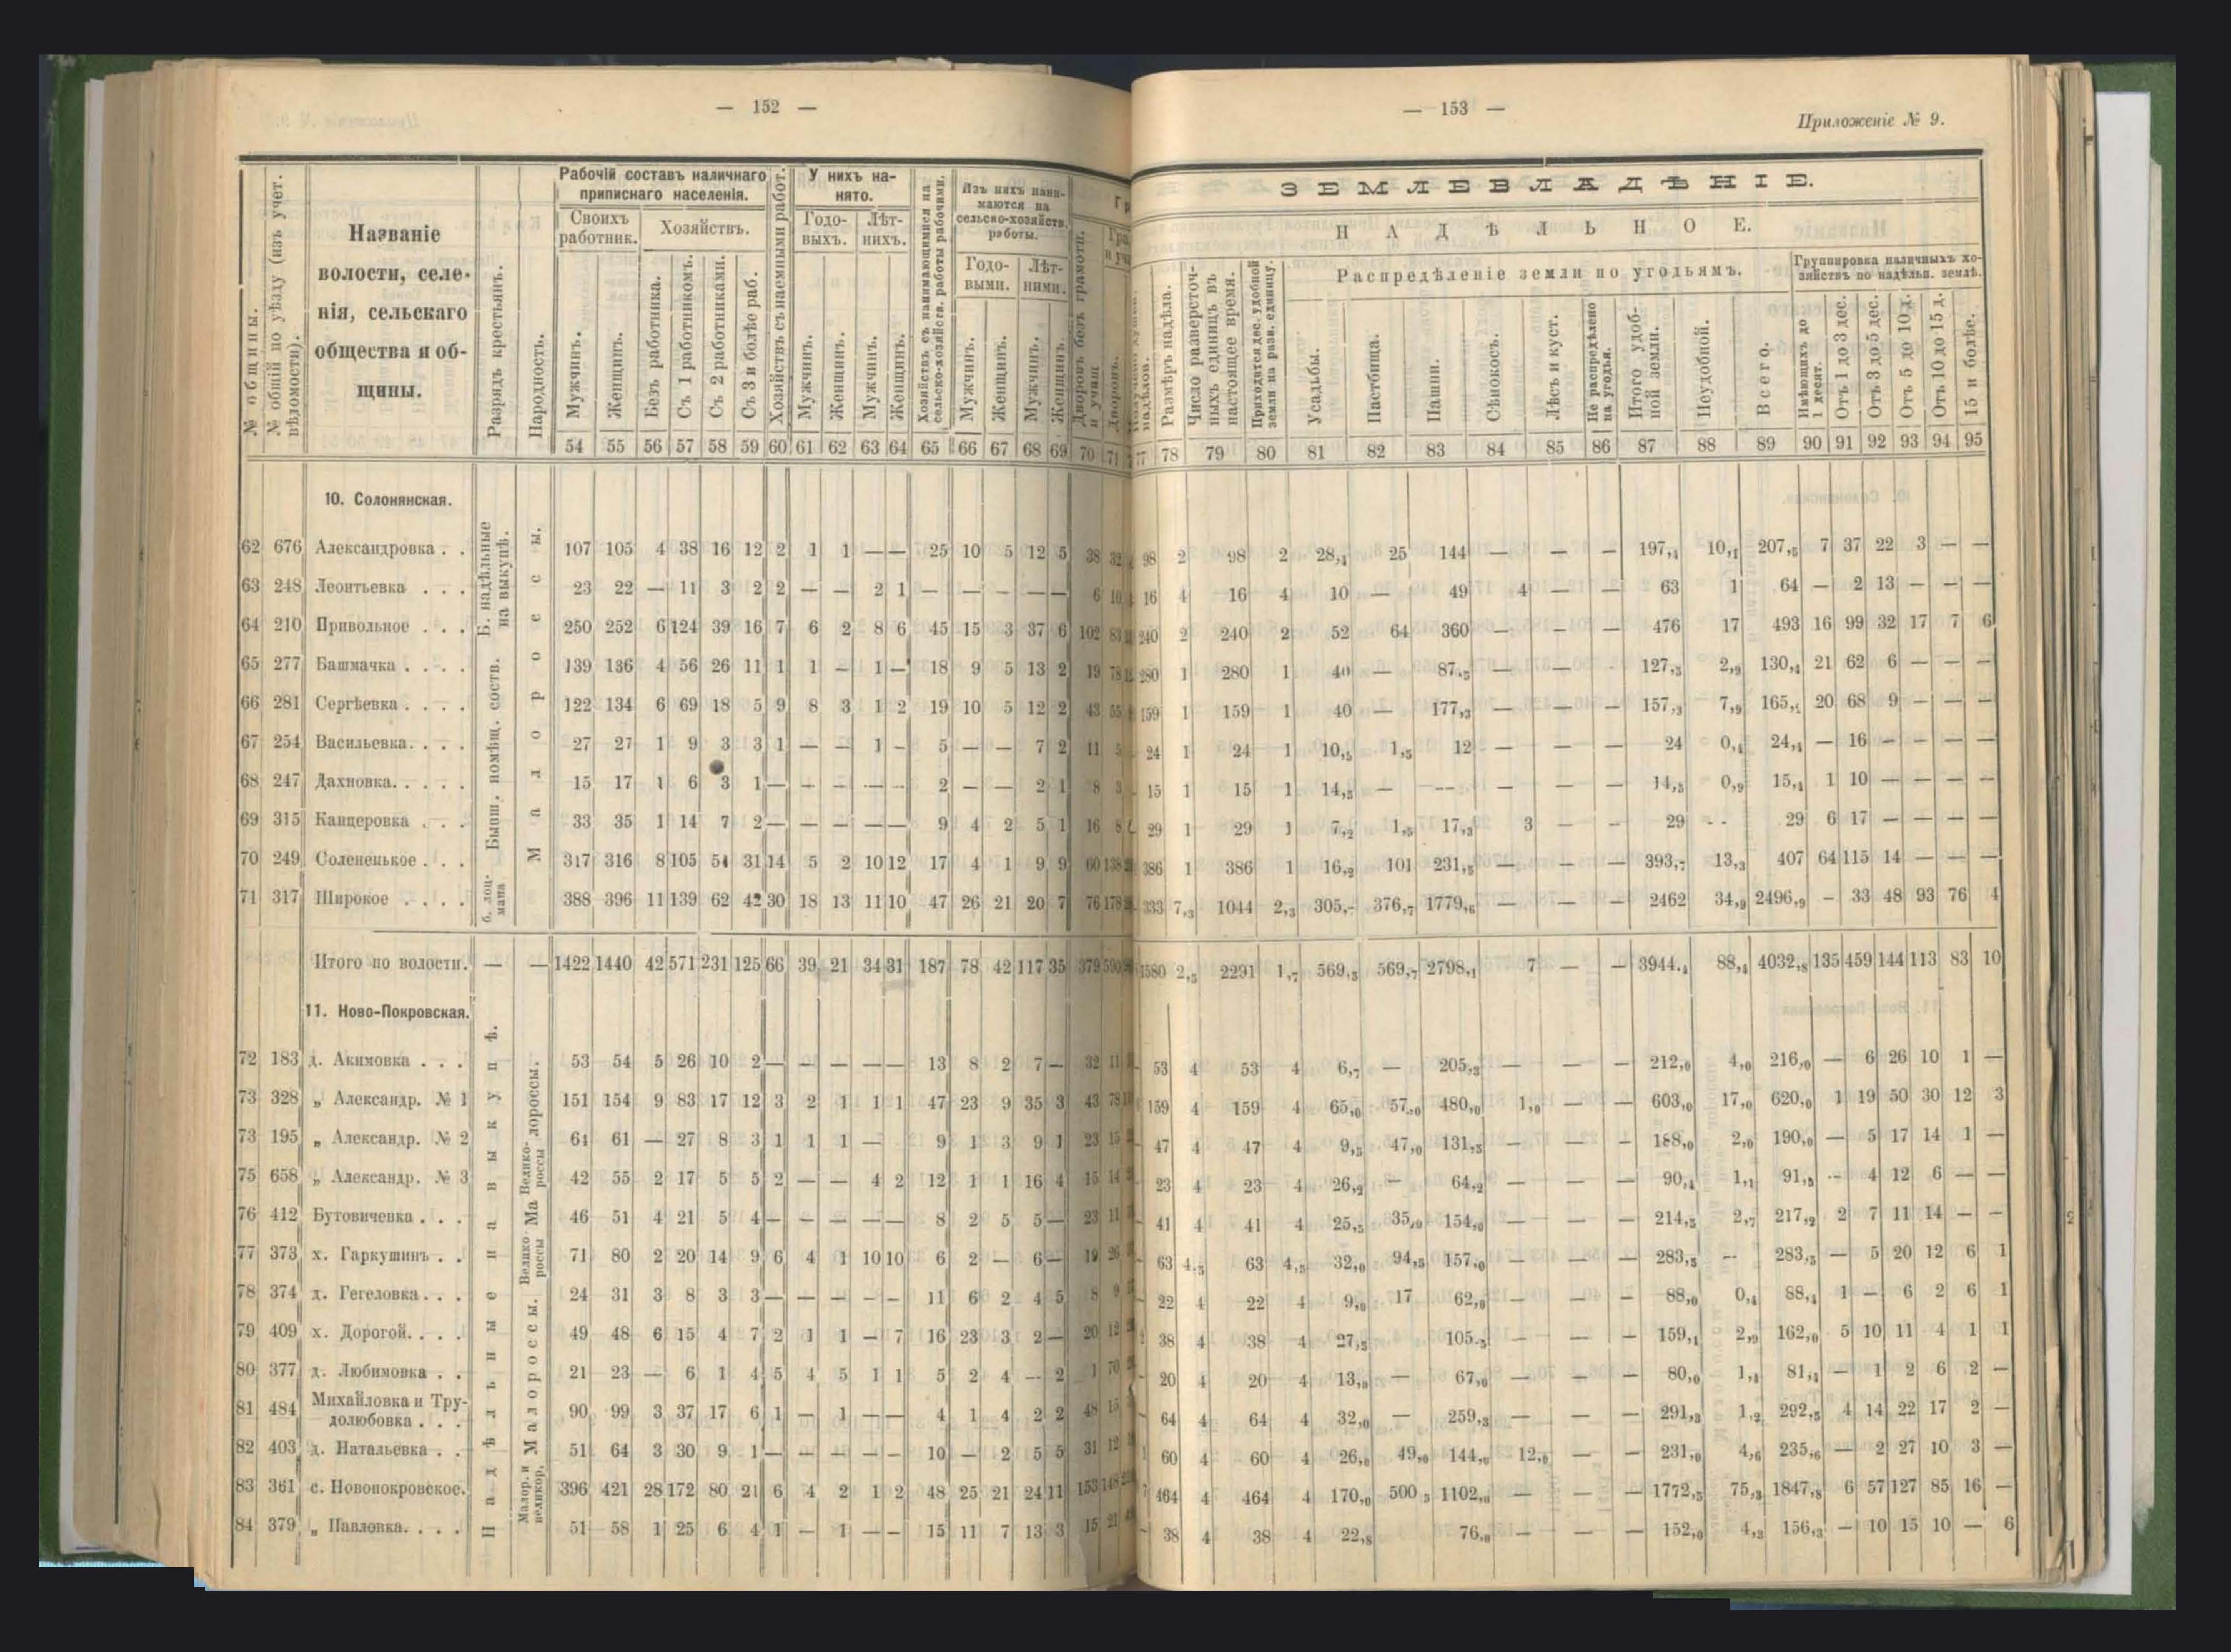 — 152 —
№ общины.
№ общій по уѣзду (изъ учет. вѣдомости).
Названіе
волости, селе-
нія, сельскаго
общества и об-
щины.
Разрядъ крестьянъ.
Народность.
Рабочій составъ наличнаго
приписнаго населенія.
Своихъ
работник.
Хозяйствъ.
Мужчинъ.
Женщинъ.
Безъ работника.
Съ 1 работникомъ.
Съ 2 работниками.
Съ 3 и болѣе раб.
Хозяйствъ съ наемными работ.
У нихъ на-
нято.
Годо-
выхъ.
Лѣт-
нихъ.
Мужчинъ.
Женщинъ.
Мужчинъ.
Женщинъ.
Хозяйствъ съ нанимающимися на
сельско-хозяйств. работы рабочими.
Изъ нихъ нани-
маются на
сельско-хозяйств.
работы.
Годо-
выми.
Лѣт-
ними.
Мужчинъ.
Женщинъ.
Мужчинъ.
Женщинъ.
54 55 56 57 58 59 60 61 62 63 64 65 66 67 68 69 70 71
10. Солонянская.
Б. надѣльные
на выкупѣ.
Бывш. помѣщ. соств.
б. лоц-
мана
Малороссы.
62 676 Александровка . . 107 105 4 38 16 12 2 1 1 — — 25 10 5 12 5 38 32
63 248 Леонтьевка . . . 23 22 — 11 3 2 2 — — 2 1 — — — — — 6 10
64 210 Привольное . . . 250 252 6 124 39 16 7 6 2 8 6 45 15 3 37 6 102 83
65 277 Башмачка . . . . 139 136 4 56 26 11 1 1 — 1 — 18 9 5 13 2 19 78
66 281 Сергѣевка . . . . 122 134 6 69 18 5 9 8 3 1 2 19 10 5 12 2 43 55
67 254 Васильевка. . . . 27 27 1 9 3 3 1 — — 1 - 5 — — 7 2 11 5
68 247 Дахновка. . . . . 15 17 1 6 3 1 — — — — — 2 — — 2 1 8 3
69 315 Канцеровка . . . 33 35 1 14 7 2 — — — — — 9 4 2 5 1 16 8
70 249 Солененькое . . . 317 316 8 105 54 31 14 5 2 10 12 17 4 1 9 9 60 138
71 317 Широкое . . . . 388 396 11 139 62 42 30 18 13 11 10 47 26 21 20 7 76 178
Итого по волости. — — 1422 1440 42 571 231 125 66 39 21 34 31 187 78 42 117 35 379 590
11. Ново-Покровская.
Надѣльные на выкупѣ.
Малор. и
великор,
Малороссы.
Велико-
россы
Ма
Велико-
россы
лороссы.
72 183 д. Акимовка . . . 53 54 5 26 10 2 — — — — — 13 8 2 7 — 32 11
73 328 „ Александр. № 1 151 154 9 83 17 12 3 2 1 1 1 47 23 9 35 3 43 78
73 195 „ Александр. № 2 61 61 — 27 8 3 1 1 1 — 9 1 3 9 1 23 15
75 658 „ Александр. № 3 42 55 2 17 5 5 2 — — 4 2 12 1 1 16 4 15 14
76 412 Бутовичевка . . . 46 51 4 21 5 4 — — — — — 8 2 5 5 — 23 11
77 373 х. Гаркушинъ . . 71 80 2 20 14 9 6 4 1 10 10 6 2 — 6 — 19 26
78 374 д. Гегеловка . . . 24 31 3 8 3 3 — — — — - 11 6 2 4 5 8 9
79 409 х. Дорогой. . . . 49 48 6 15 4 7 2 1 1 — 7 16 23 3 2 — 20 12
80 377 д. Любимовка . . 21 23 — 6 1 4 5 4 5 1 1 5 2 4 — 2 1 70
81 484 Михайловка и Тру-
долюбовка . . . 90 99 3 37 17 6 1 — 1 — — 4 1 4 2 2 48 15
82 403 д. Натальевка . . 51 64 3 30 9 1 — — — — — 10 — 2 5 5 31 12
83 361 с. Новопокровское. 396 421 28 172 80 21 6 4 2 1 2 48 25 21 24 11 153 148
84 379 „ Павловка. . . . 51 58 1 25 6 4 1 — 1 — — 15 11 7 13 3 15 21
— 153 —
Приложеніе № 9.
ЗЕМЛЕВЛАДѢНІЕ.
НАДѢЛЬНОЕ.
надѣловъ.
Размѣръ надѣла.
Число разверсточ-
ныхъ единицъ въ
настоящее время.
Приходится дес. удобной
земли на разв. единицу.
Распредѣленіе земли по угодьямъ.
Усадьбы.
Пастбища.
Пашни.
Сѣнокосъ.
Лѣсъ и куст.
Не распредѣлено
на угодья.
Итого удоб-
ной земли.
Неудобной.
Всего.
Группировка наличныхъ хо-
зяйствъ по надѣльн. землѣ.
Имѣющихъ до
1 десят.
Отъ 1 до 3 дес.
Отъ 3 до 5 дес.
Отъ 5 до 10 д.
Отъ 10 до 15 д.
15 и болѣе.
77 78 79 80 81 82 83 84 85 86 87 88 89 90 91 92 93 94 95
98 2 98 2 28,4 25 144 — — — 197,4 10,1 207,5 7 37 22 3 — —
16 4 16 4 10 — 49 4 — — 63 1 64 — 2 13 — — —
240 2 240 2 52 64 360 — — — 476 17 493 16 99 32 17 7 6
280 1 280 1 40 — 87,5 — — - 127,5 2,9 130,4 21 62 6 — — —
159 1 159 1 40 — 177,3 — — — 157,3 7,9 165, 20 68 9 — — —
24 1 24 1 10,5 1,5 12 — — — 24 0,4 24,4 — 16 — — — —
15 1 15 1 14,5 — — — — — 14,5 0,9 15,4 1 10 — — — —
29 1 29 1 7,2 1,5 17,3 3 — — 29 - - 29 6 17 — — — —
386 1 386 1 16,2 101 231,5 — — — 393,7 13,3 407 64 115 14 — — —
333 7,3 1044 2,3 305,7 376,7 1779,6 — — — 2462 34,9 2496,9 - 33 48 93 76 4
1580 2,5 2291 1,7 569,5 569,7 2798,1 7 — — 3944,4 88,4 4032,8 135 459 144 113 83 10
53 4 53 4 6,7 — 205,3 — — — 212,0 4,0 216,0 — 6 26 10 1 —
159 4 159 4 65,0 57,0 480,0 1,0 — — 603,0 17,0 620,0 1 19 50 30 12 3
47 4 47 4 9,5 47,0 131,5 — — — 188,0 2,0 190,0 — 5 17 14 1 —
23 4 23 4 26,2 — 64,2 — — — 90,4 1,1 91,5 - 4 12 6 — —
41 4 41 4 25,5 35,0 154,0 — — — 214,5 2,7 217,2 2 7 11 14 — —
63 4,5 63 4,5 32,0 94,5 157,0 — — — 283,5 — 283,5 — 5 20 12 6 1
22 4 22 4 9,0 17 62,0 — — — 88,0 0,4 88,4 1 — 6 2 6 1
38 4 38 4 27,5 105,5 — — — 159,1 2,9 162,0 5 10 11 4 1 1
20 4 20 4 13,0 — 67,0 — — — 80,0 1,4 81,4 — 1 2 6 2 —
64 4 64 4 32,0 — 259,3 — — — 291,3 1,2 292,5 4 14 22 17 2 —
60 4 60 4 26,0 49,0 144,0 12,0 — — 231,0 4,6 235,6 — 2 27 10 3 —
464 4 464 4 170,0 500 5 1102,0 — — — 1772,5 75,3 1847,8 6 57 127 85 16 —
38 4 38 4 22,8 76,0 — — — 152,0 4,3 156,3 — 10 15 10 — 6